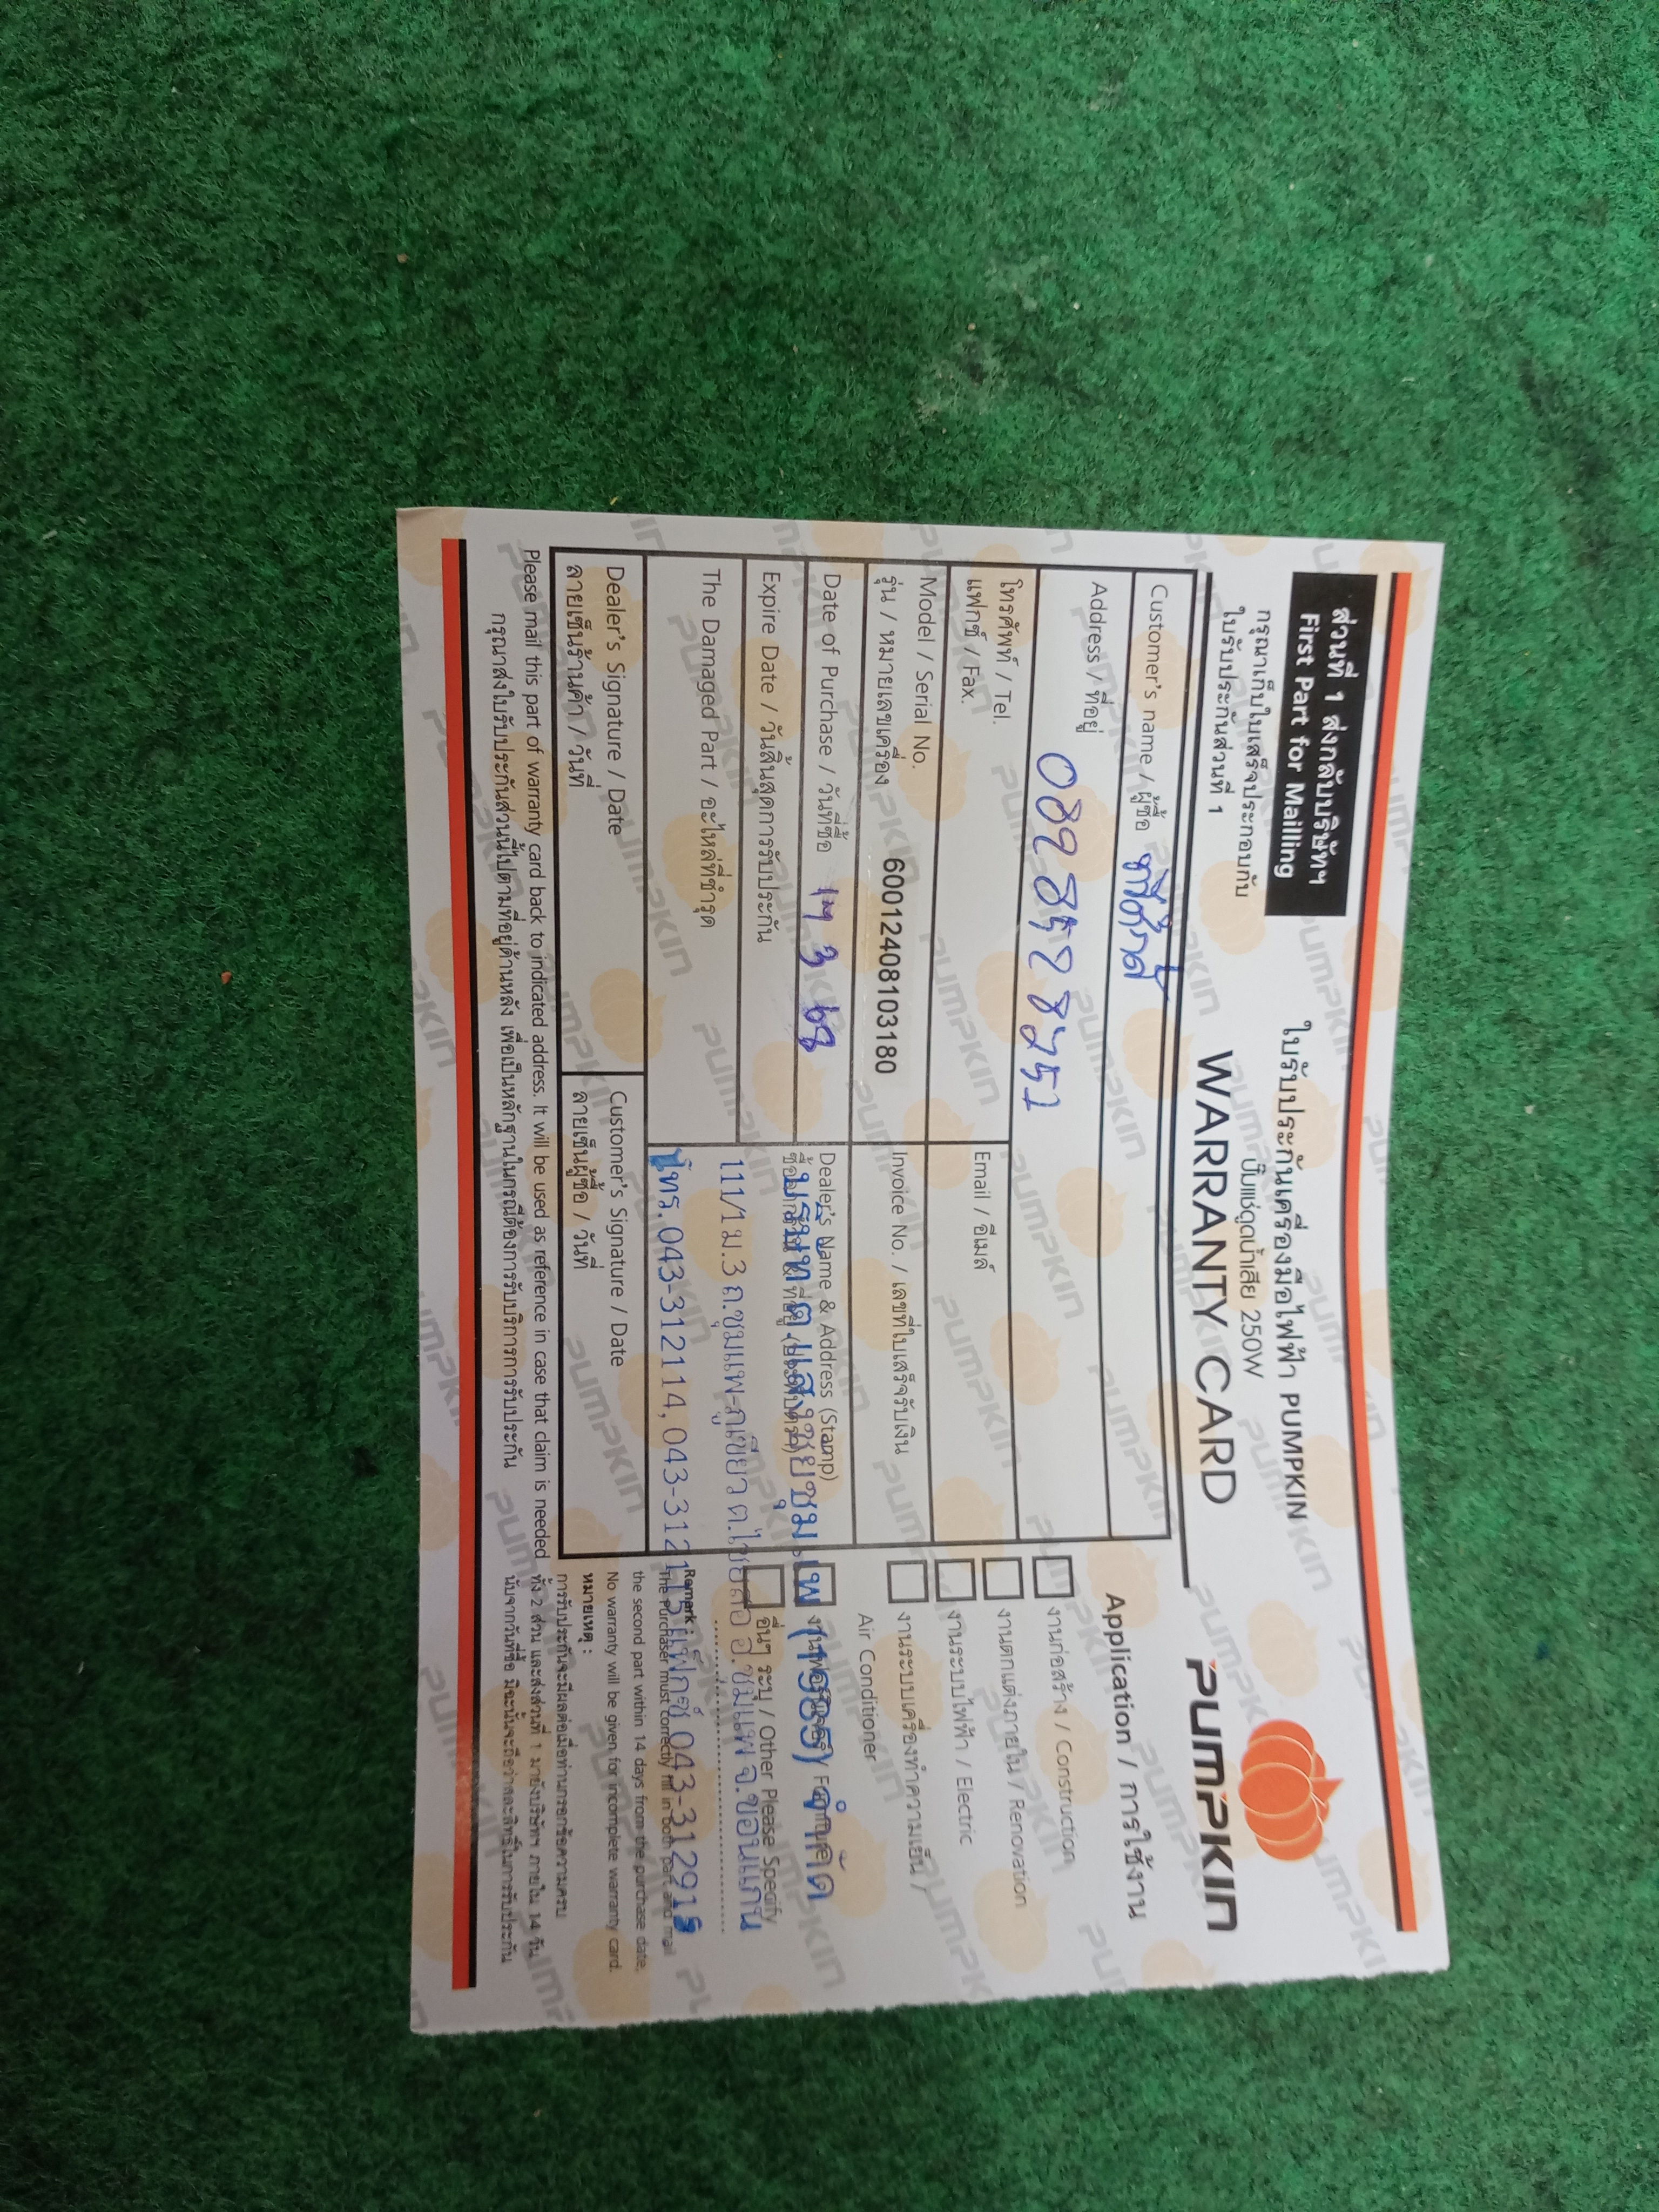 ส่วนที่ 1 ส่งกลับบริษัทฯ
First Part for Mailling
กรุณาเก็บใบเสร็จประกอบกับ
ใบรับประกันส่วนที่ 1
ใบรับประกันเครื่องมือไฟฟ้า PUMPKIN
ปั๊มแช่ดูดน้ำเสีย 250W
WARRANTY CARD
PUMPKIN
Customer's name / ผู้ซื้อ
Address / ที่อยู่
089 8528252
โทรศัพท์ / Tel.
แฟกซ์ / Fax.
Email / อีเมล์
Model / Serial No.
รุ่น / หมายเลขเครื่อง
60012408103180
Invoice No. / เลขที่ใบเสร็จรับเงิน
Date of Purchase / วันที่ซื้อ 17 3 68
Expire Date / วันสิ้นสุดการรับประกัน
The Damaged Part / อะไหล่ที่ชำรุด
Dealer's Name & Address (Stamp)
บริษัท ต.แสงชัยชุมแพ (1985) จำกัด
111/1 ม.3 ถ.ชุมแพ-ภูเขียว ต.ไชยสอ อ.ชุมแพ จ.ขอนแก่น
โทร.043-312114,043-312115 แฟกซ์ 043-312915
Dealer's Signature / Date
ลายเซ็นร้านค้า / วันที่
Customer's Signature / Date
ลายเซ็นผู้ซื้อ / วันที่
Application / การใช้งาน
งานก่อสร้าง / Construction
งานตกแต่งภายใน / Renovation
งานระบบไฟฟ้า / Electric
งานระบบเครื่องทำความเย็น /
Air Conditioner
งานเฟอร์นิเจอร์ / Furniture
อื่นๆ ระบุ / Other Please Specify
Remark :
The Purchaser must correctly fill in both part and mail
the second part within 14 days from the purchase date,
No warranty will be given for incomplete warranty card.
หมายเหตุ :
การรับประกันจะมีผลต่อเมื่อท่านกรอกข้อความครบ
ทั้ง 2 ส่วน และส่งส่วนที่ 1 มายังบริษัทฯ ภายใน 14 วัน
นับจากวันที่ซื้อ มิฉะนั้นจะถือว่าสละสิทธิ์ในการรับประกัน
Please mail this part of warranty card back to indicated address. It will be used as reference in case that claim is needed
กรุณาส่งใบรับประกันส่วนนี้ไปตามที่อยู่ด้านหลัง เพื่อเป็นหลักฐานในกรณีต้องการรับบริการการรับประกัน